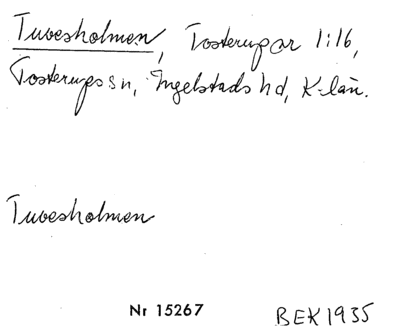 Tuvesholmen, Tosterup ar 1:16,
Tosterups sn, Ingelstads hd, K-län.
Tuvesholmen
Nr 15267 BEK 1935